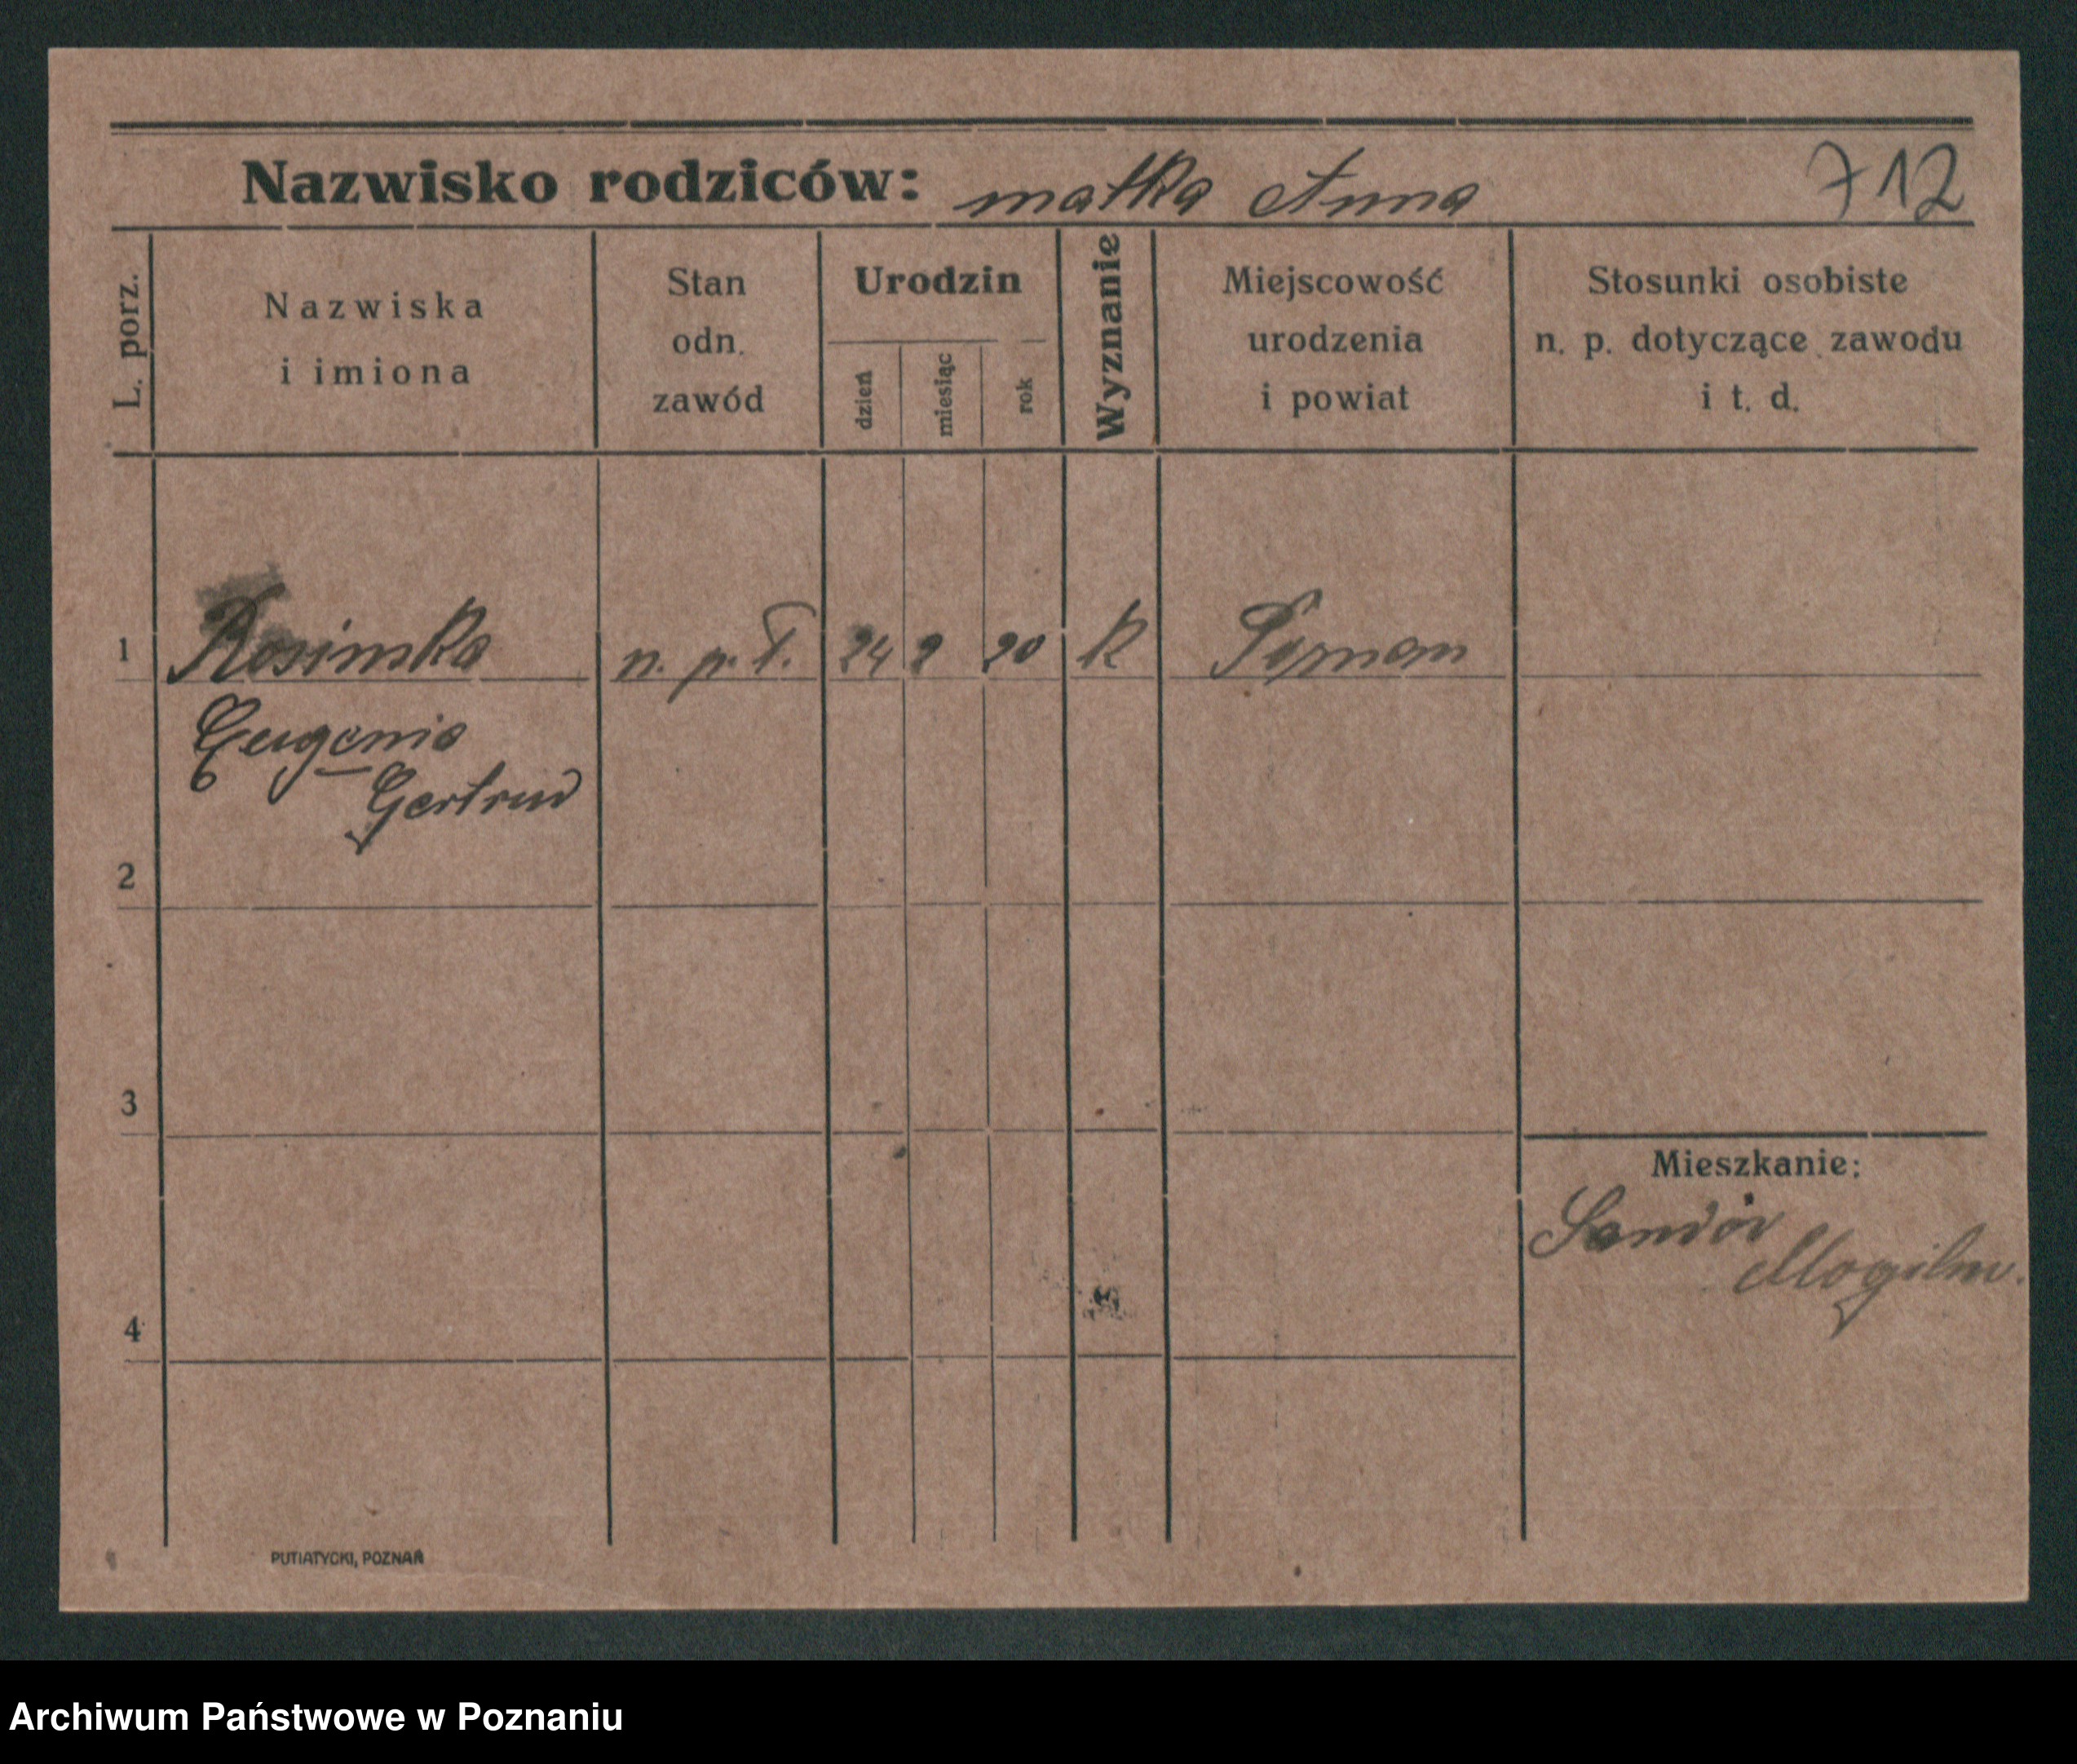 Nazwisko rodziców: matka Anna 712
L. porz.
Nazwiska
i imiona
Stan
odn.
zawód
Urodzin
dzień
miesiąc
rok
Wyznanie
Miejscowość
urodzenia
i powiat
Stosunki osobiste
n. p. dotyczące zawodu
i t. d.
1 Rosinska n. p. T. 24 2 20 K
Eugenia
Gertrud
2
3
4
Mieszkanie:
Mogiln.
PUTIATYCKI, POZNAŃ
Archiwum Państwowe w Poznaniu